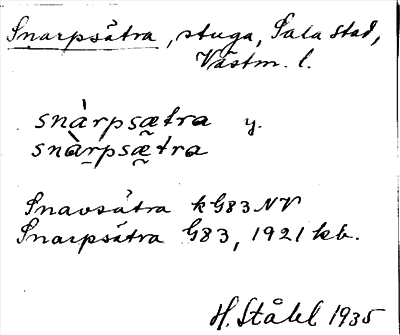 Snarpsätra, stuga, Sala stad,
Västm. l.
snàrpsætra y.
snàr̠psæ̰tra
Snavsätra kG83NV
Snarpsätra G83, 1921 kb.
H. Ståhl 1935